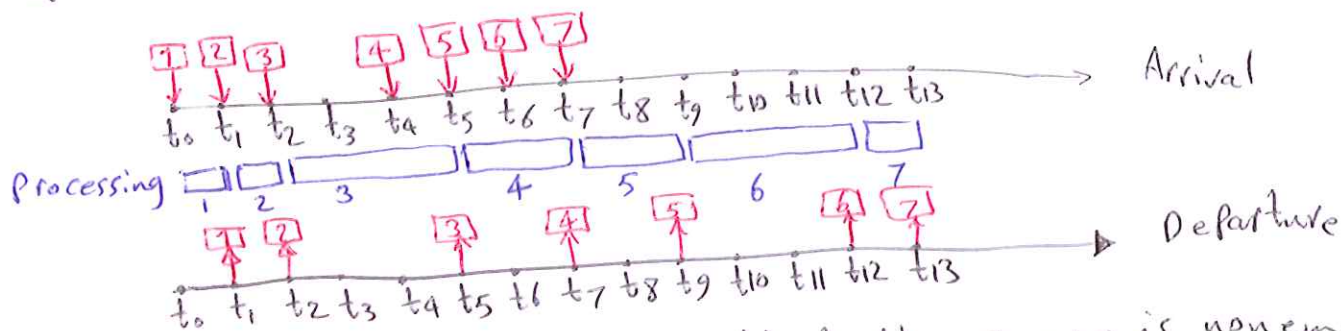 1 2 3 4 5 6 7
Arrival
t0 t1 t2 t3 t4 t5 t6 t7 t8 t9 t10 t11 t12 t13
Processing
1 2 3 4 5 6 7
1 2 3 4 5 6 7
Departure
t0 t1 t2 t3 t4 t5 t6 t7 t8 t9 t10 t11 t12 t13